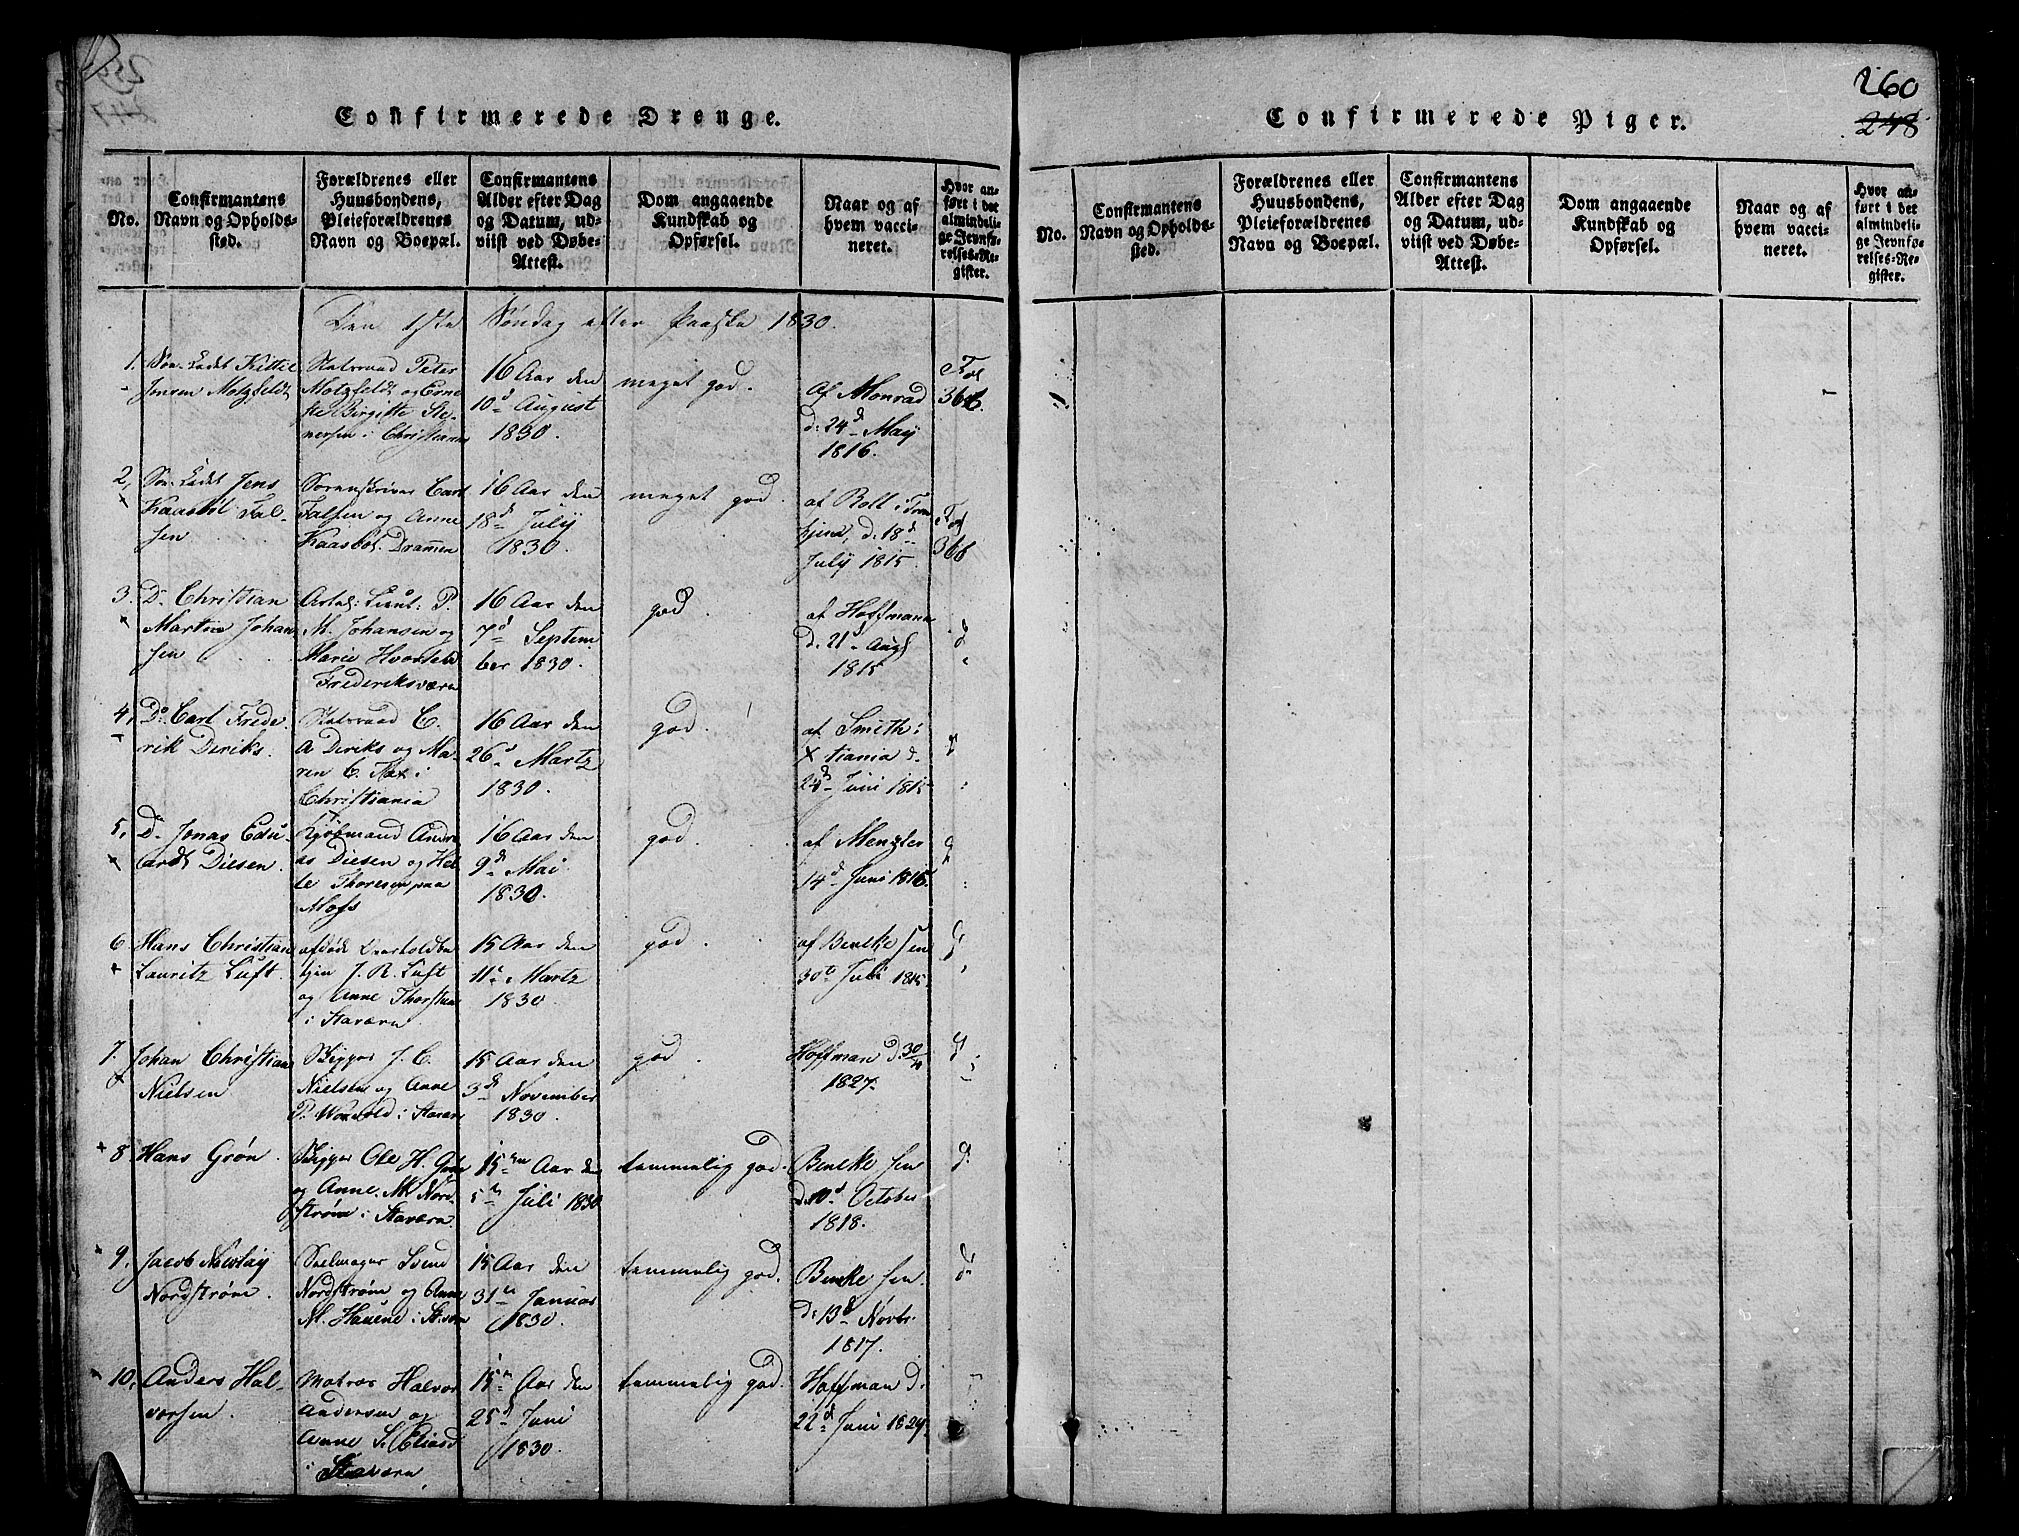 Confirmerede Drenge.
No.
Confirmantens
Navn og Opholds-
sted.
Forældrenes eller
Huusbondens,
Pleieforældrenes
Navn og Boepæl.
Confirmantens
Alder efter Dag
og Datum, ud-
viist ved Døbe-
Attest.
Dom angaaende
Kundskab og
Opførsel.
Naar og af
hvem vacci-
neret.
Hvor an-
ført i det
almindeli-
ge Jevnfø-
relses-Re-
gister.
Den 1ste Søndag efter Paaske 1830.
1. Søe-Cadet Kittil
Jensen Motzfeldt
Statsraad Peter
Motzfeldt og Erne-
ste Birgitte Ste-
nersen i Christiania
16 Aar den
10d August
1830.
meget god.
Af Monrad
d: 24d May
1816.
Fol
366.
2, Søe-Cadet Jens
Kaasbøl Fal-
sen
Sorenskriver Carl
Falsen og Anne
Kaasbøl. Drammen
16 Aar den
18d July
1830.
meget god.
af Roll i Tron
hjem, d. 18d
July 1815.
Fol
366
3. Do Christian
Martin Johan
sen
Artol: Lieut: P.
M. Johansen og
Marie
Frederiksværn
16 Aar den
7d Septem
ber 1830.
god.
af Hoffmann
d. 21d Augs
1815
4, Do Carl Frede
rik Diriks.
Statsraad C.
A Diriks og Ma-
ren C. Fax i
Christiania
16 Aar den
26d Martz
1830.
god.
af Smith i
Xtiania d.
24d Juni 1815
5, Do Jonas Edu-
ardt Diesen.
Kjøbmand Andre
as Diesen og Hel-
le Thoresen paa
Moss
16 Aar den
9d Mai
1830.
god
af Mentzler
14d Juni 1816.
6. Hans Christian
Lauritz Luft.
afdøde
J. R. Luft
og Anne Thorsten
i Staværn.
15 Aar den
11d Martz
1830.
god.
af Bencke sen
30te Juli 1815.
7. Johan Christian
Nielsen
Skipper J. C.
Nielsen og Anne
P. i Staværn
15 Aar den
3d November
1830.
god.
Hoffman d. 30/4
1827.
8. Hans Grøn.
Skipper Ole H. Grøn
og Anne M. Nord-
strøm i Staværn.
15 Aar den
5te Juli 1830
temmelig god.
Bencke sen
d. 10d October
1818.
9. Jacob Nicolay
Nordstrøm.
Seilmager Svend
Nordstrøm og Anne
M. Hauene i St:værn
15 Aar den
31te Januar
1830.
temmelig god.
Bencke sen.
d: 13d Novbr.
1817.
10. Anders Hal-
vorsen.
Matros Halvor
Andersen og
Anne S.
i Staværn
15 Aar den
25d Juni
1830.
temmelig god.
Hoffman d.
22d Juni 1829.
Confirmerede Piger.
260
248
No.
Confirmantens
Navn og Opholds-
sted.
Forældrenes eller
Huusbondens,
Pleieforældrenes
Navn og Boepæl.
Confirmantens
Alder efter Dag
og Datum, ud-
viist ved Døbe-
Attest.
Dom angaaende
Kundskab og
Opførsel.
Naar og af
hvem vacci-
neret.
Hvor an-
ført i det
almindeli-
ge Jevnfø-
relses-Re-
gister.